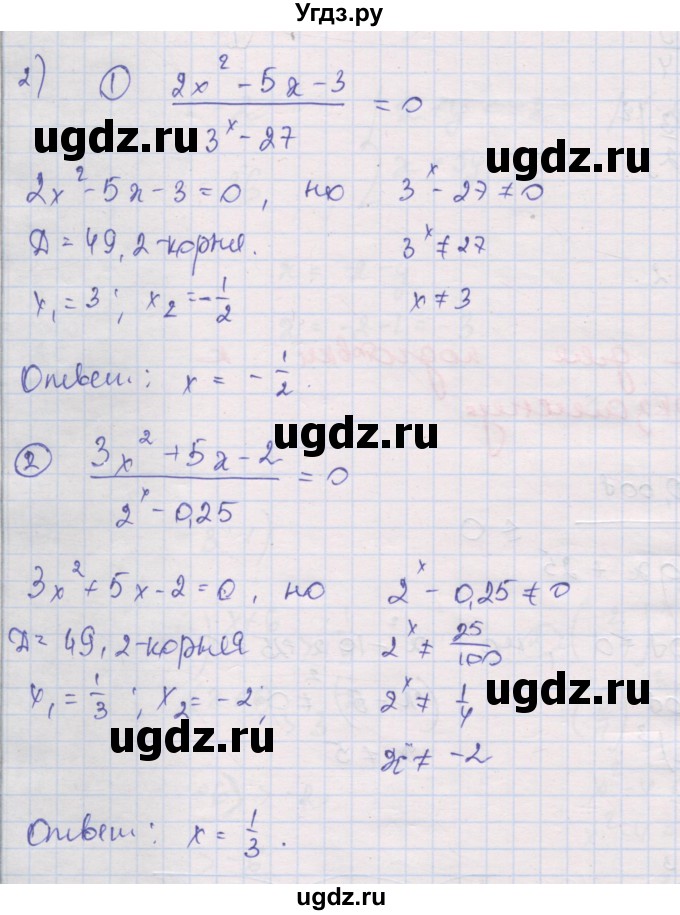 Угдз.ру
2) ① (2x² - 5x - 3)/(3ˣ - 27) = 0
ugdz.ru ugdz.ru
2x² - 5x - 3 = 0, но 3ˣ - 27 ≠ 0
Д = 49, 2-корня. 3ˣ ≠ 27
x₁ = 3; x₂ = -1/2 x ≠ 3
ugdz.ru ugdz.ru
Ответ: x = -1/2.
ugdz.ru
② (3x² + 5x - 2)/(2ˣ - 0,25) = 0
ugdz.ru
3x² + 5x - 2 = 0, но 2ˣ - 0,25 ≠ 0
ugdz.ru
Д = 49, 2-корня 2ˣ ≠ 25/100
x₁ = 1/3; x₂ = -2; 2ˣ ≠ 1/4
ugdz.ru
x ≠ -2
ugdz.ru
Ответ: x = 1/3.
ugdz.ru
ugdz.ru